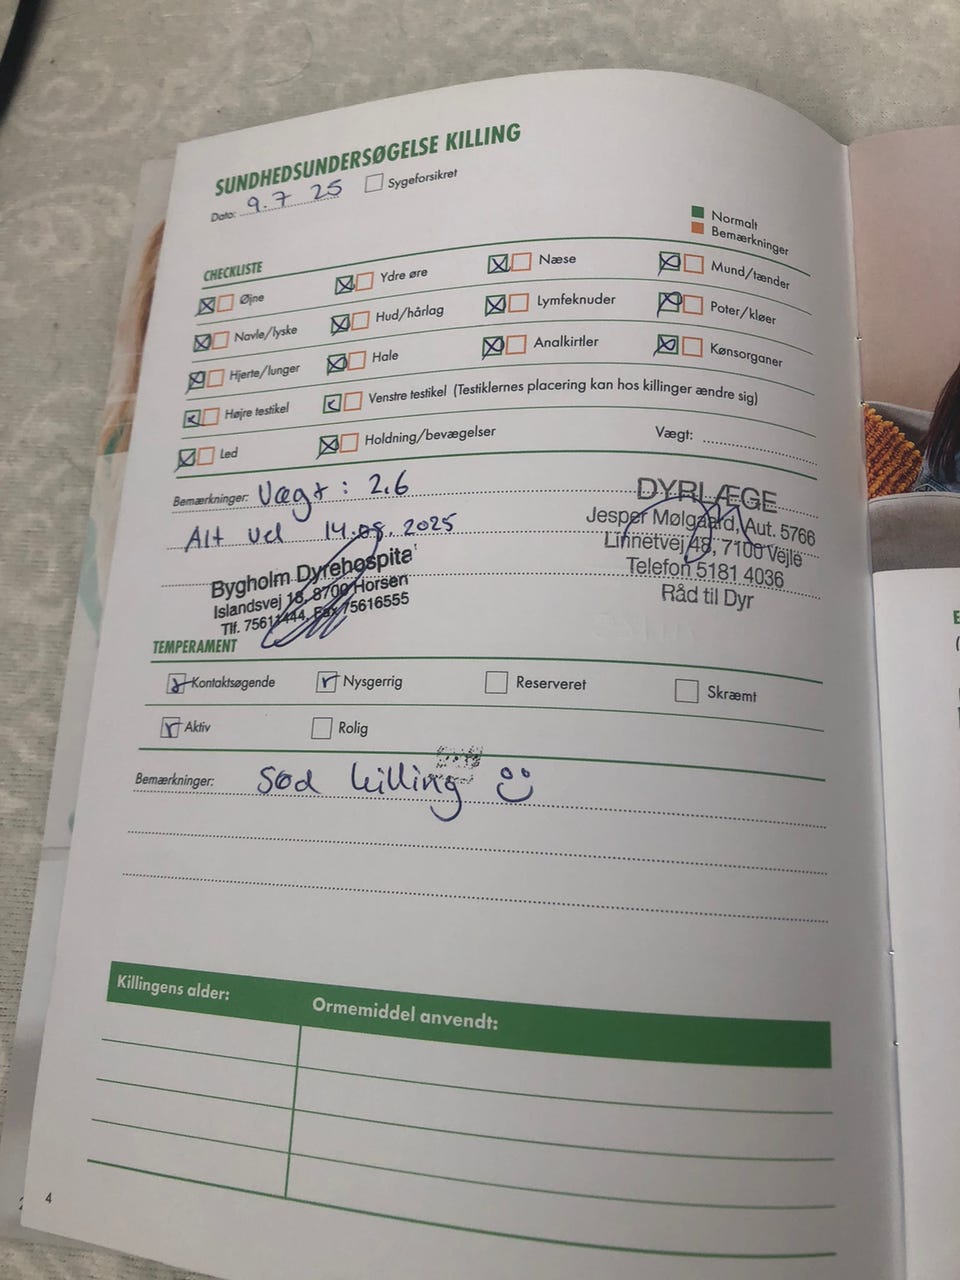 SUNDHEDSUNDERSØGELSE KILLING
Dato: 9.7 25 Sygeforsikret
Normalt
Bemærkninger
CHECKLISTE
Øjne Ydre øre Næse Mund/tænder
Navle/lyske Hud/hårlag Lymfeknuder Poter/kløer
Hjerte/lunger Hale Analkirtler Kønsorganer
Højre testikel Venstre testikel (Testiklernes placering kan hos killinger ændre sig)
Led Holdning/bevægelser Vægt:
Bemærkninger: Vægt: 2,6
Alt vel 14.08.2025
Bygholm Dyrehospital
Islandsvej 18, 8700 Horsen
Tlf. 75611444, Fax 75616555
DYRLÆGE
Jesper Mølgaard, Aut. 5766
Linnetvej 48, 7100 Vejle
Telefon 5181 4036
Råd til Dyr
TEMPERAMENT
Kontaktsøgende Nysgerrig Reserveret Skræmt
Aktiv Rolig
Bemærkninger: Sød killing
Killingens alder: Ormemiddel anvendt:
4